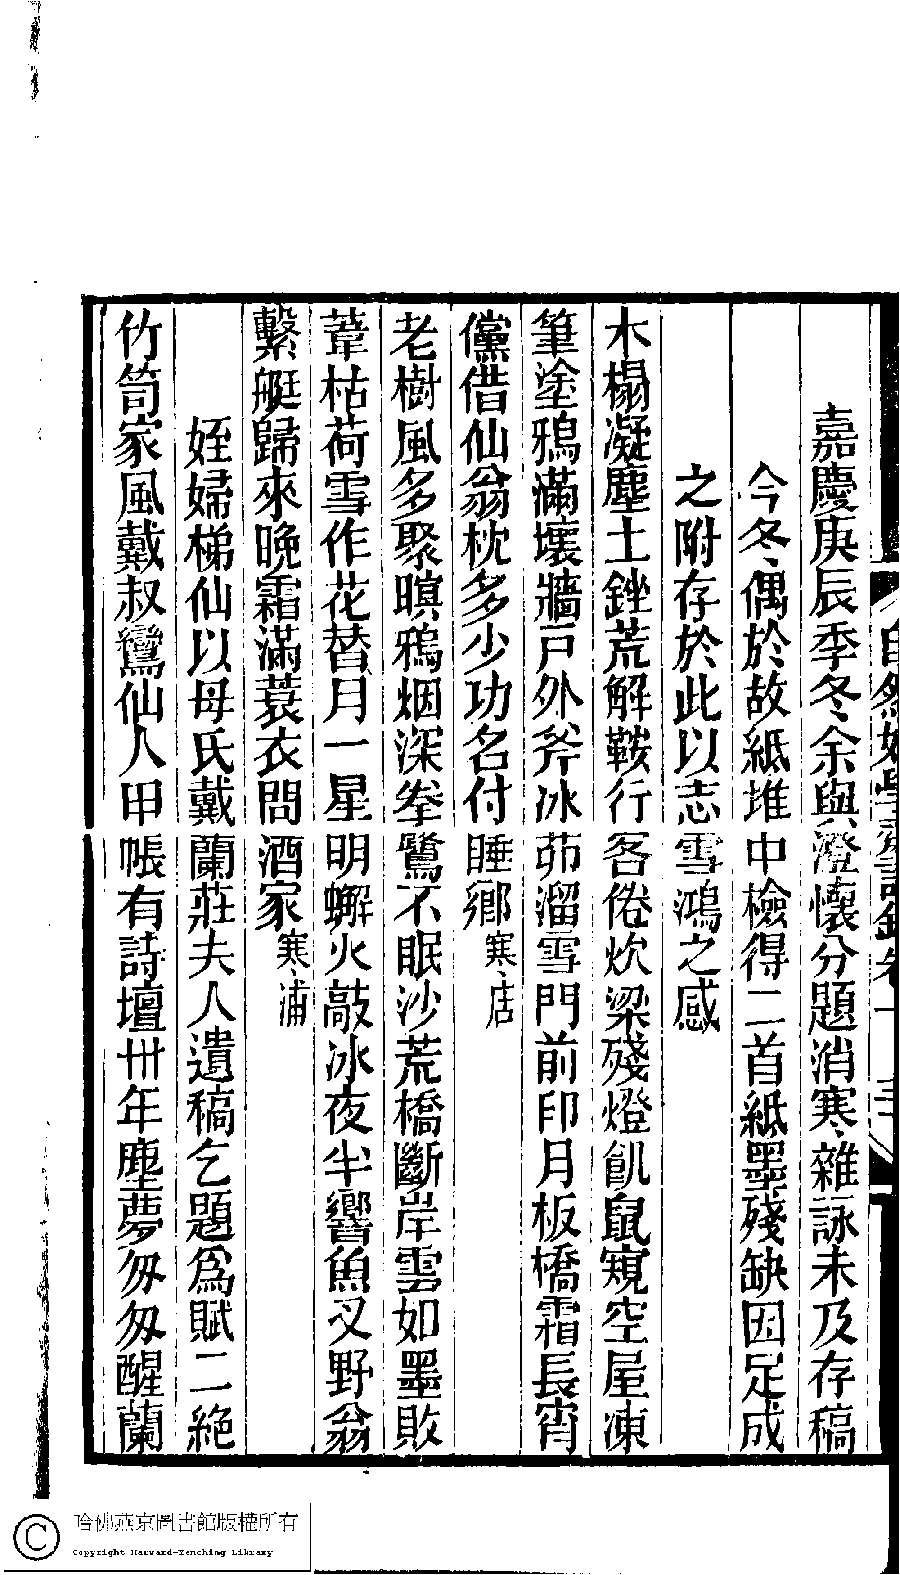 嘉慶庚辰季冬余與澄懷分題消寒雜詠未及存稿
今冬偶於故紙堆中檢得二首紙墨殘缺因足成
之附存於此以志雪鴻之感
木榻凝塵土銼荒解鞍行客倦炊梁殘燈飢鼠窺空屋凍
筆塗鴉滿壞牆戸外斧冰茆溜雪門前印月板橋霜長宵
儻借仙翁枕多少功名付睡鄉寒店
老樹風多聚暝鴉烟深拳鷺不眠沙荒橋斷岸雲如墨敗
葦枯荷雪作花替月一星明蠏火敲冰夜半響魚叉野翁
繫艇歸來晚霜滿蓑衣問酒家寒浦
姪婦梯仙以母氏戴蘭莊夫人遺稿乞題爲賦二絶
竹笥家風戴叔鸞仙人甲帳有詩壇卅年塵夢匆匆醒蘭
自然好學齋詩鈔卷十
哈佛燕京圖書館版權所有
Copyright Harvard-Yenching Library